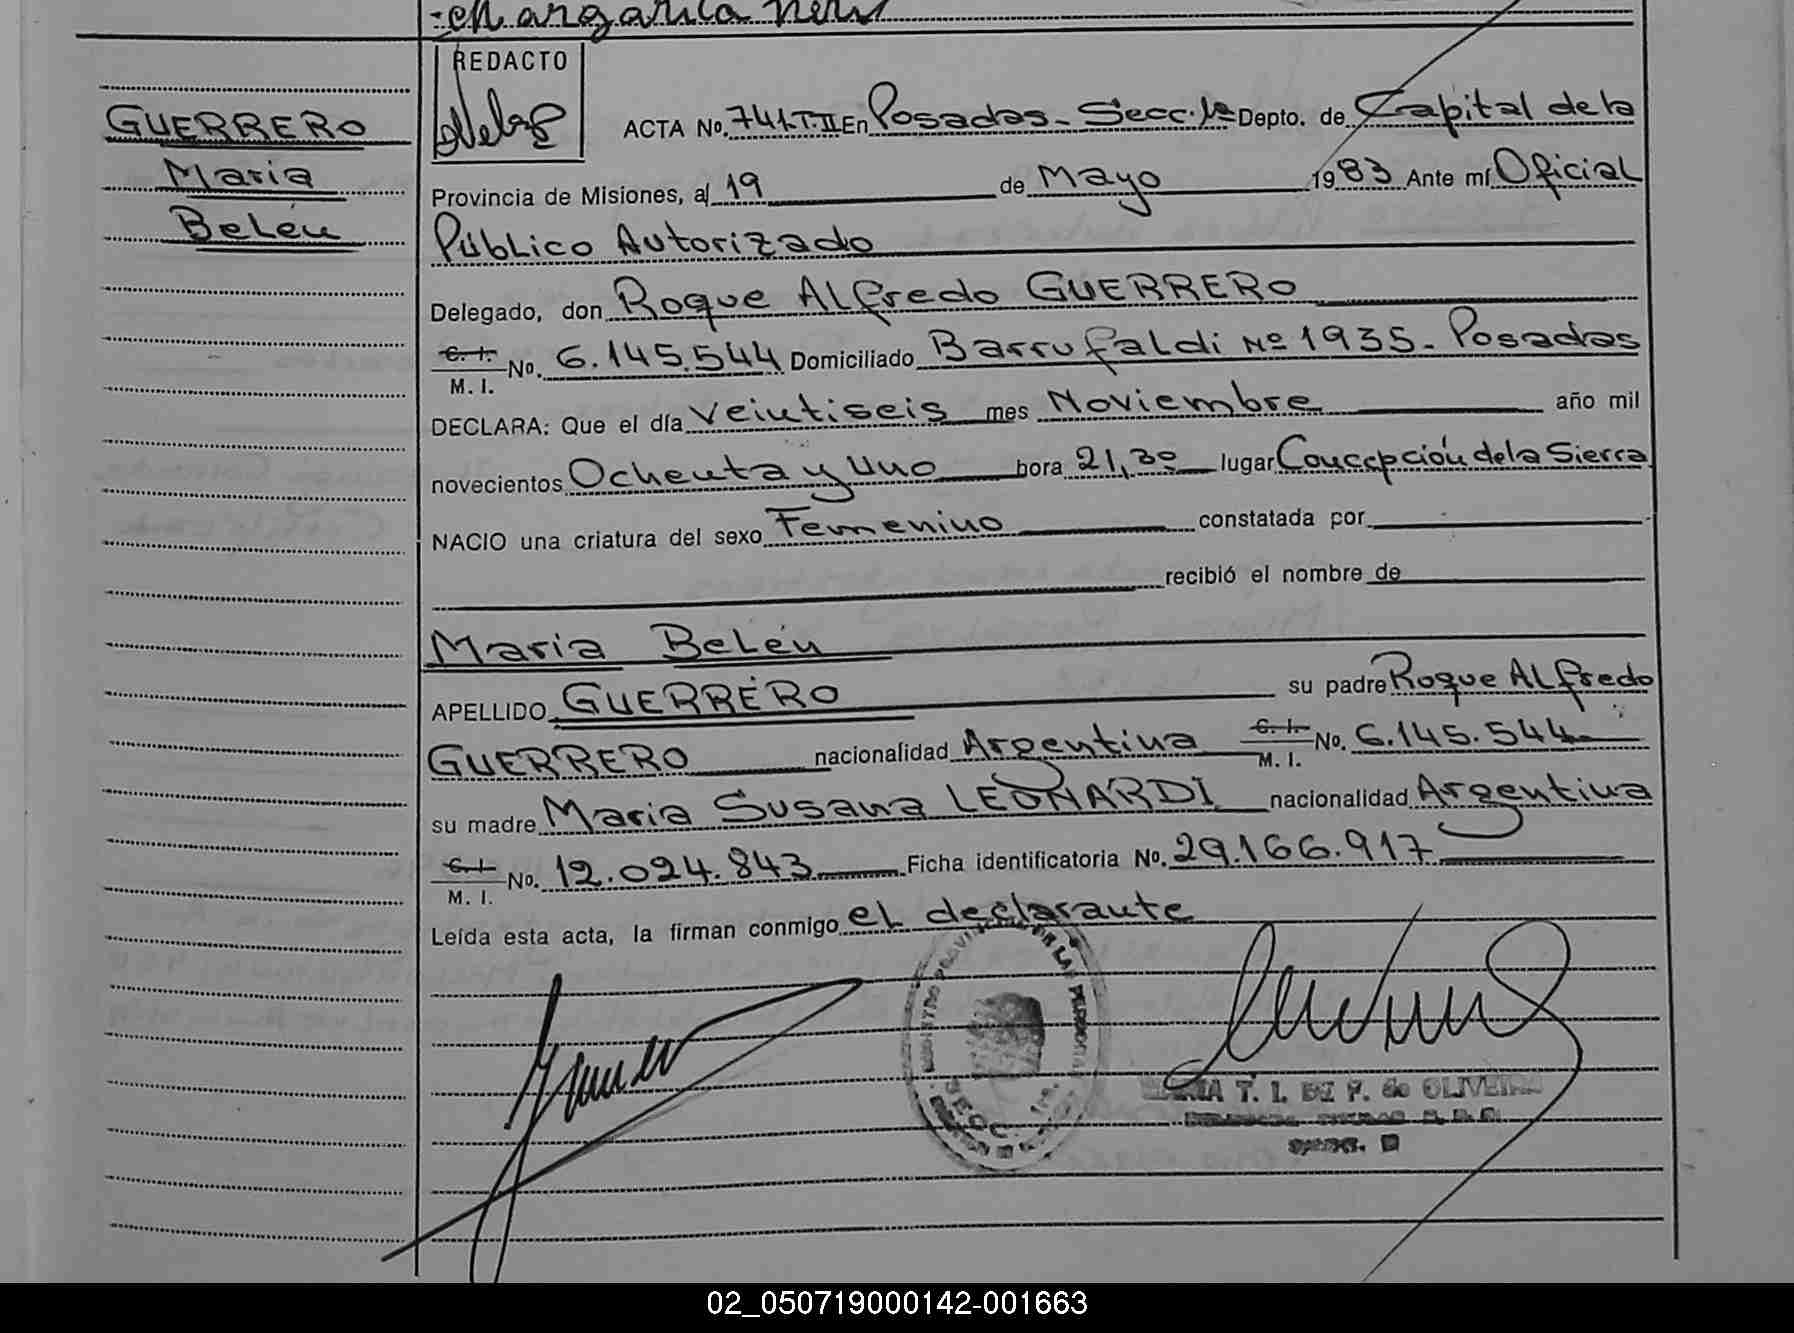 REDACTO
GUERRERO
Maria
Belén
ACTA No. 741.T.II En Posadas - Secc. 1ª Depto. de Capital de la
Provincia de Misiones, a 19 de Mayo 1983 Ante mí Oficial
Público Autorizado
Delegado, don Roque Alfredo GUERRERO
C. I. M. I. No. 6.145.544 Domiciliado Barrufaldi Nº 1935 - Posadas
DECLARA: Que el día Veintiseis mes Noviembre año mil
novecientos Ochenta y Uno hora 21,30 lugar Concepción de la Sierra
NACIO una criatura del sexo Femenino constatada por
recibió el nombre de
Maria Belén
APELLIDO GUERRERO su padre Roque Alfredo
GUERRERO nacionalidad Argentina C. I. M. I. No. 6.145.544
su madre Maria Susana LEONARDI nacionalidad Argentina
C. I. M. I. No. 12.024.843 Ficha identificatoria No. 29.166.917
Leída esta acta, la firman conmigo el declarante
T. I. DE P. de OLIVEIRA
02_050719000142-001663